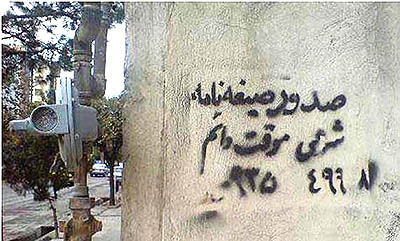 صدور صیغه نامه
شرعی موقت دائم
۰۹۳۵ ۴۹۹